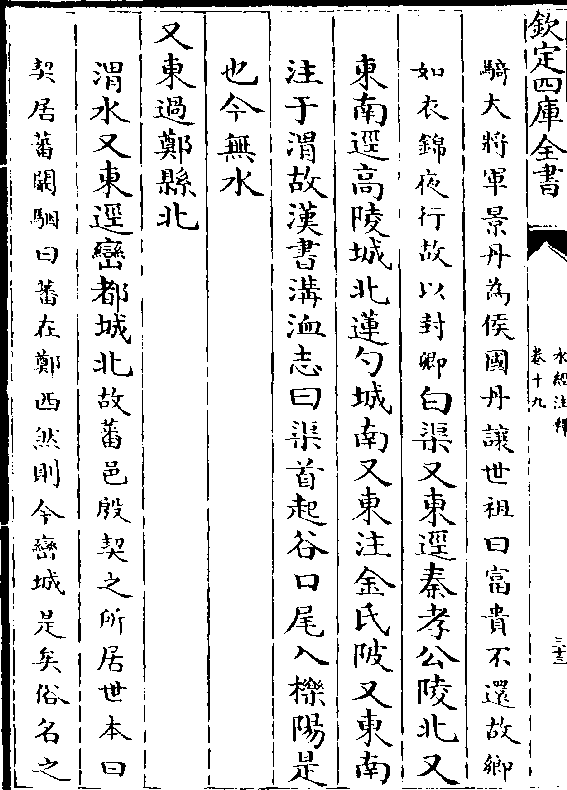 欽定四庫全書
水經注釋
卷十九
三十三
騎大將軍景丹為侯國丹讓世祖曰富貴不還故鄉
如衣錦夜行故以封卿白渠又東逕秦孝公陵北又
東南逕高陵城北蓮勺城南又東注金氏陂又東南
注于渭故漢書溝洫志曰渠首起谷口尾入櫟陽是
也今無水
又東過鄭縣北
渭水又東逕巒都城北故蕃邑殷契之所居世本曰
契居蕃闞駰曰蕃在鄭西然則今巒城是矣俗名之